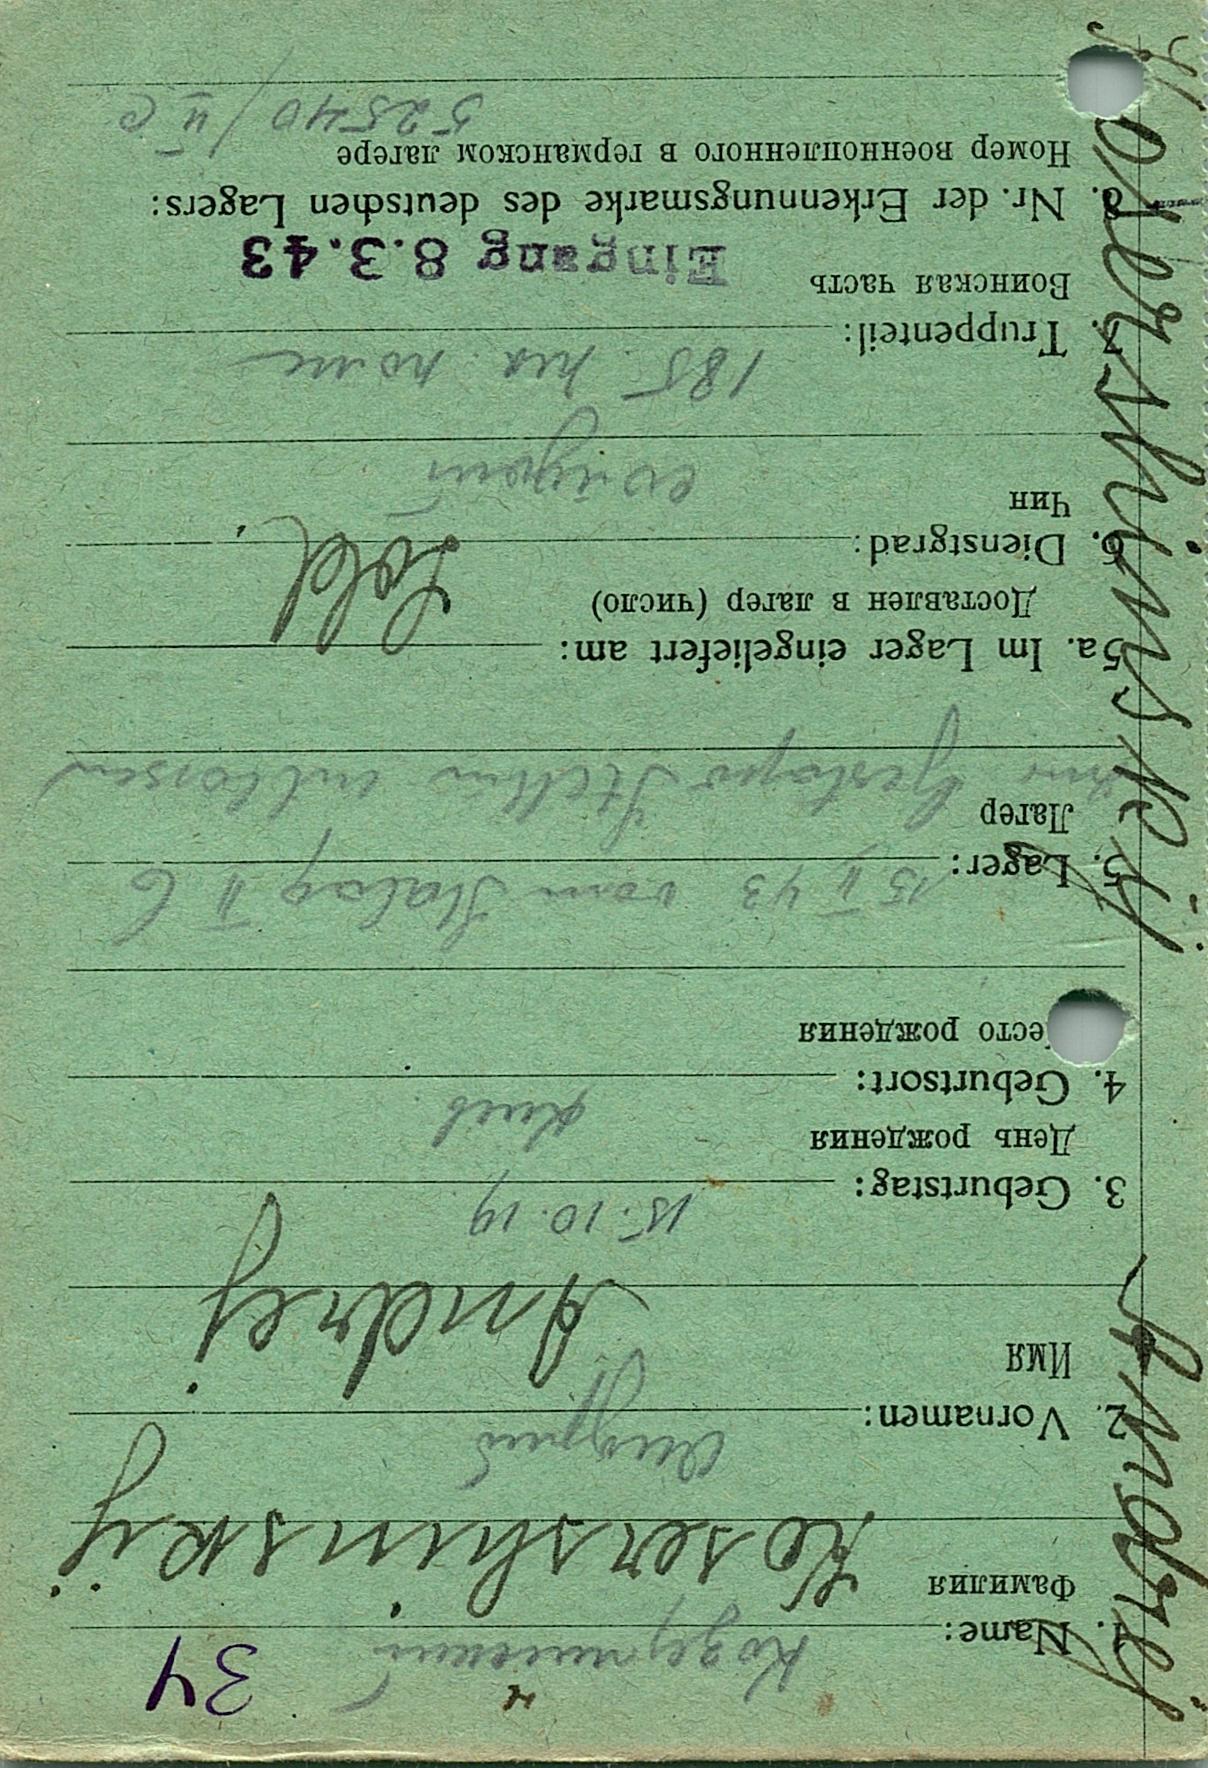 34
Козершинский
1. Name:
Фамилия
Kosershinskÿ
Андрей
2. Vornamen:
Имя
Andrej
15.10.19
3. Geburtstag:
День рождения
Киев
4. Geburtsort:
Место рождения
15. II 43 vom Stalag II C
5. Lager:
Лагер
zur Gestapo Stettin entlassen
5a. Im Lager eingeliefert am:
Доставлен в лагер (число)
Sold.
6. Dienstgrad:
Чин
185
7. Truppenteil:
Воинская часть
Eingang 8.3.43
8. Nr. der Erkennungsmarke des deutschen Lagers:
Номер военнопленного в германском лагере
52540/II C
Kosershinskÿ Andrej